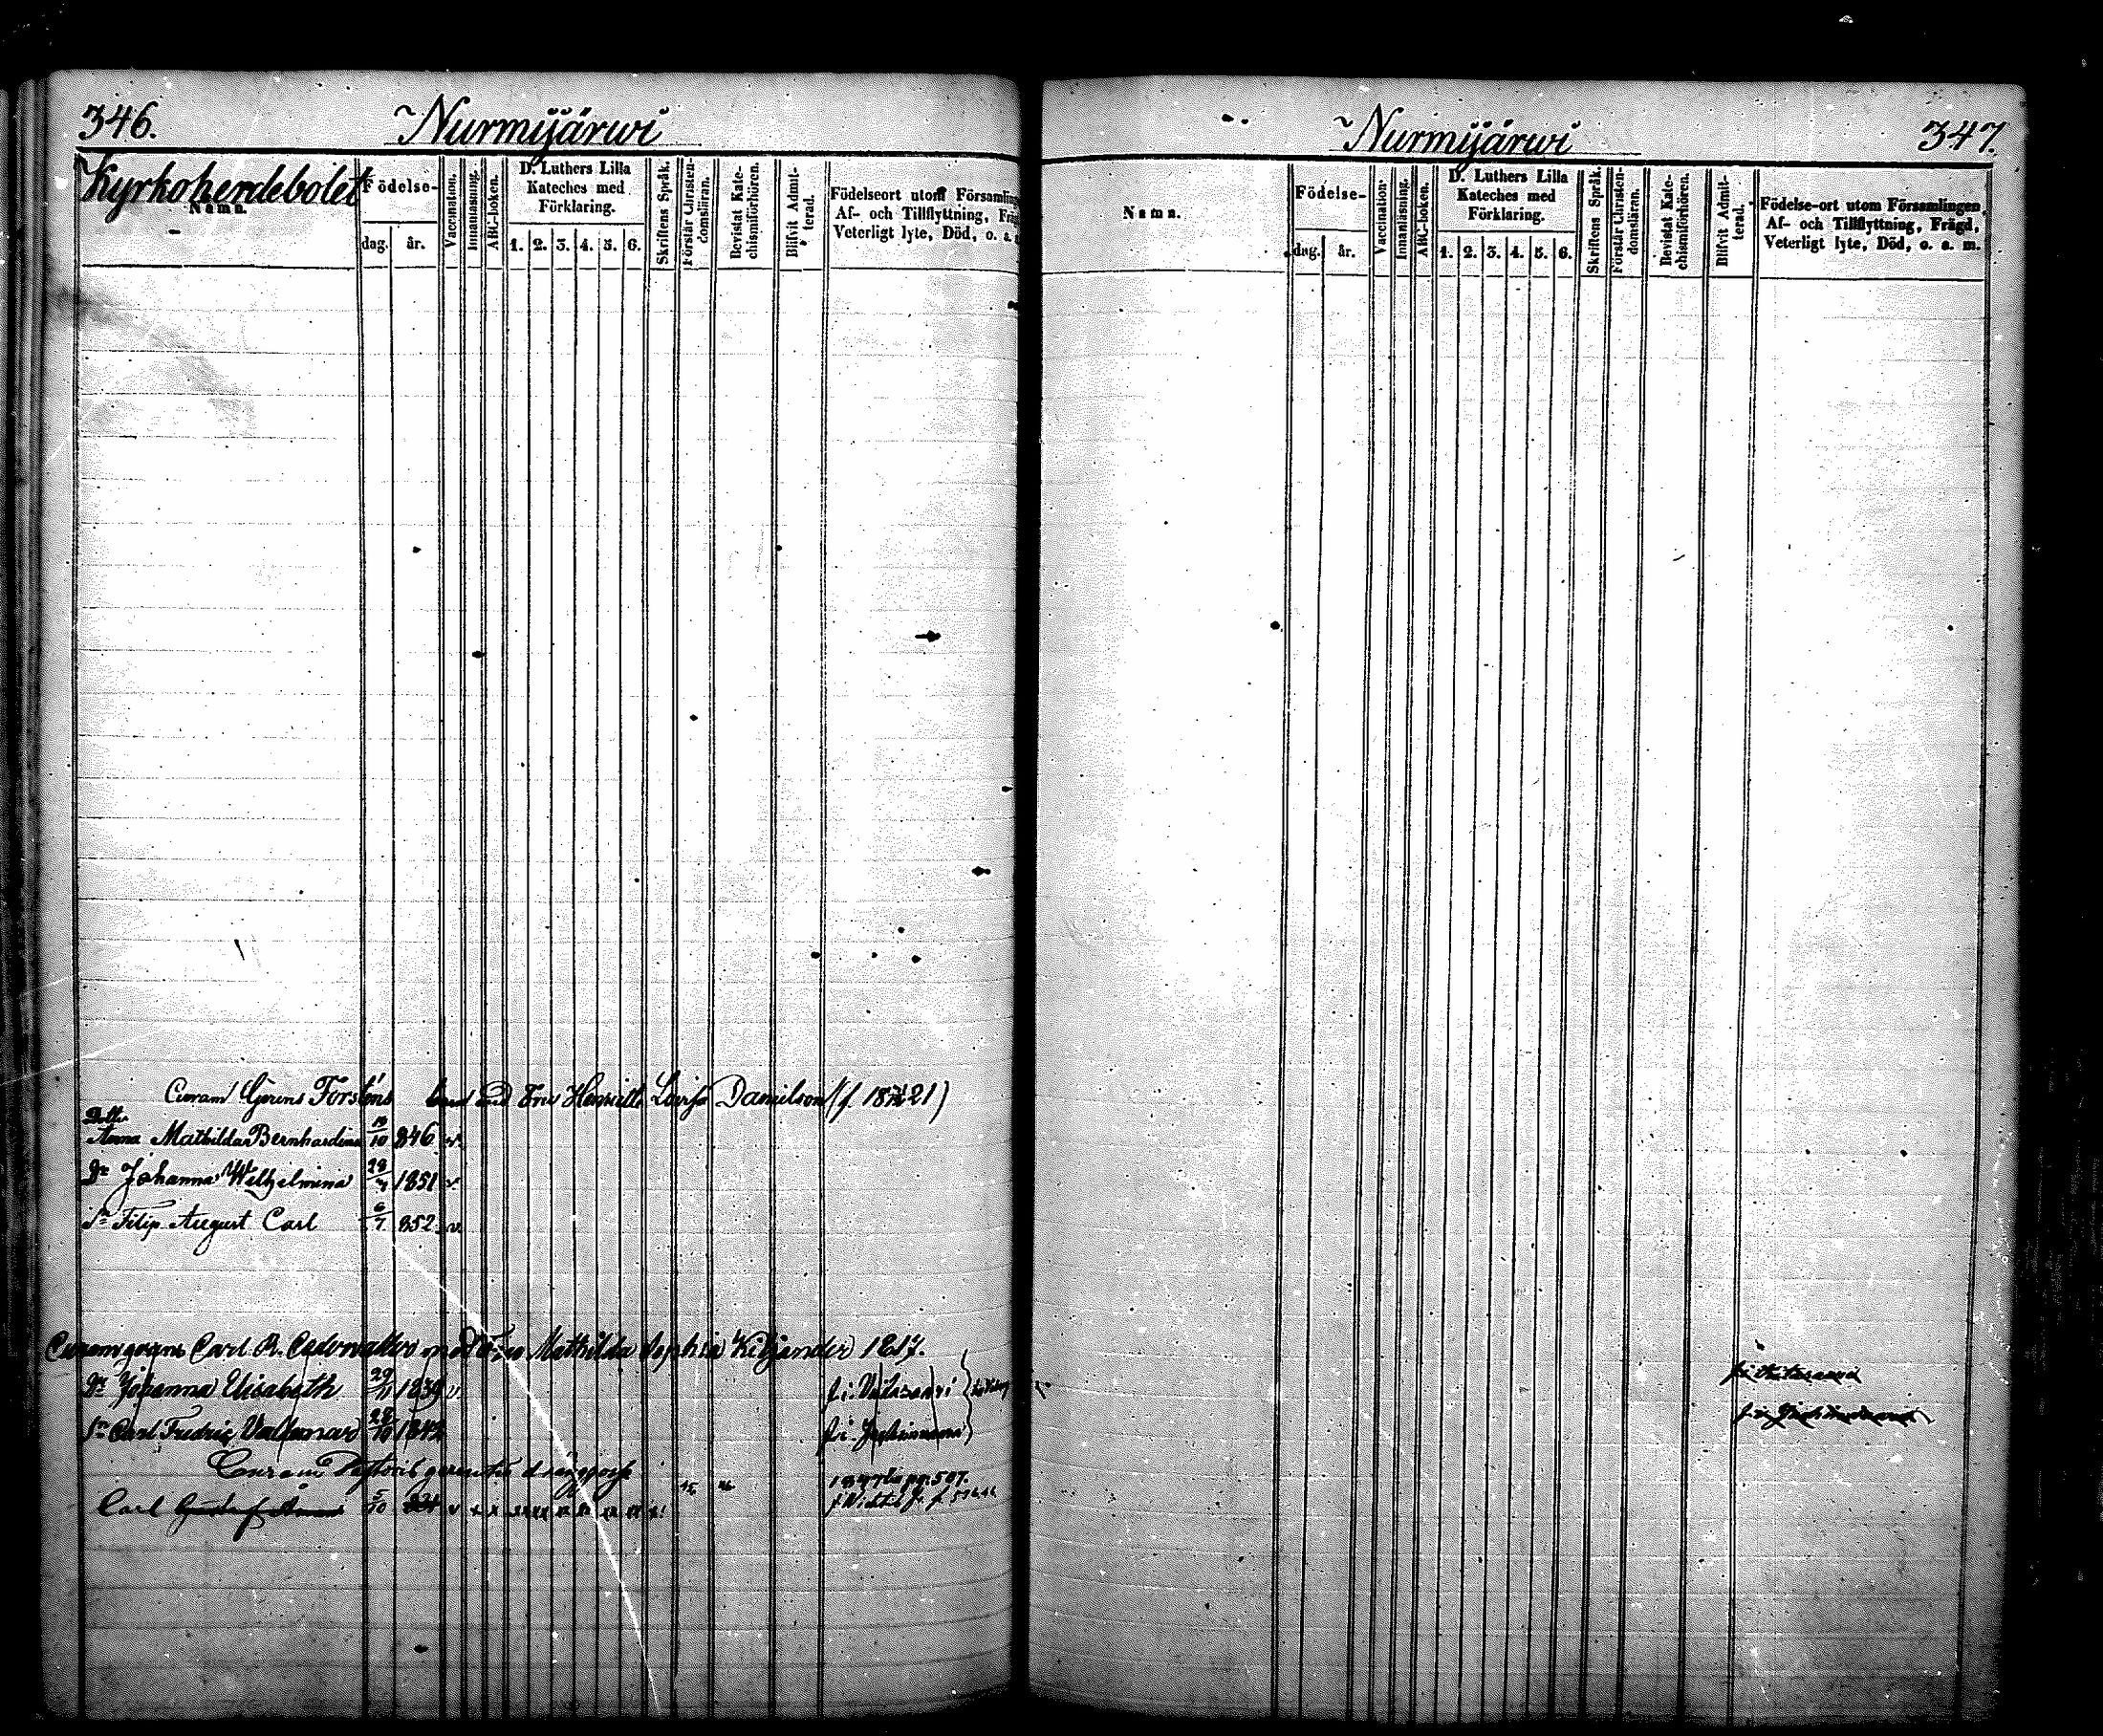 346. Nurmijärwi
Kyrkoherdebolet
Namn.
Födelse-
dag. år.
Vaccination.
Innanläsning.
ABC-boken.
D. Luthers Lilla
Kateches med
Förklaring.
1. 2. 3. 4. 5. 6.
Skriftens Språk.
Förstår Christen-
domsläran.
Bevistat Kate-
chismiförhören.
Blifvit Admit-
terad.
Födelseort utom Församling
Af- och Tillflyttning, Fräg
Veterligt lyte, Död, o. a.
Curam Gerens Forsténs Fru Henriette Lovisa Danielson (f. 18 21)
Dottr
Anna Mathilda Bernhardina 10 846 v
Dr Johanna Wilhelmina 28 1851 v
Sn Filip August Carl 6/7 852 v
Curam gerens Carl R. Cedervaller med Fru Mathilda Sophia Kiljander 1817.
Dr Johanna Elisabeth 29/11 1839 v f. i.
Sn Carl Fredric Valdemar 28/10 1842 f. i.
Curam Pastoris gerentis
Carl Gustaf 5/10 v x x
Nurmijärwi 347.
Namn.
Födelse-
dag. år.
Vaccination.
Innanläsning.
ABC-boken.
D. Luthers Lilla
Kateches med
Förklaring.
1. 2. 3. 4. 5. 6.
Skriftens Språk.
Förstår Christen-
domsläran.
Bevistat Kate-
chismiförhören.
Blifvit Admit-
terad.
Födelse-ort utom Församlingen,
Af- och Tillflyttning, Frägd,
Veterligt lyte, Död, o. a. m.